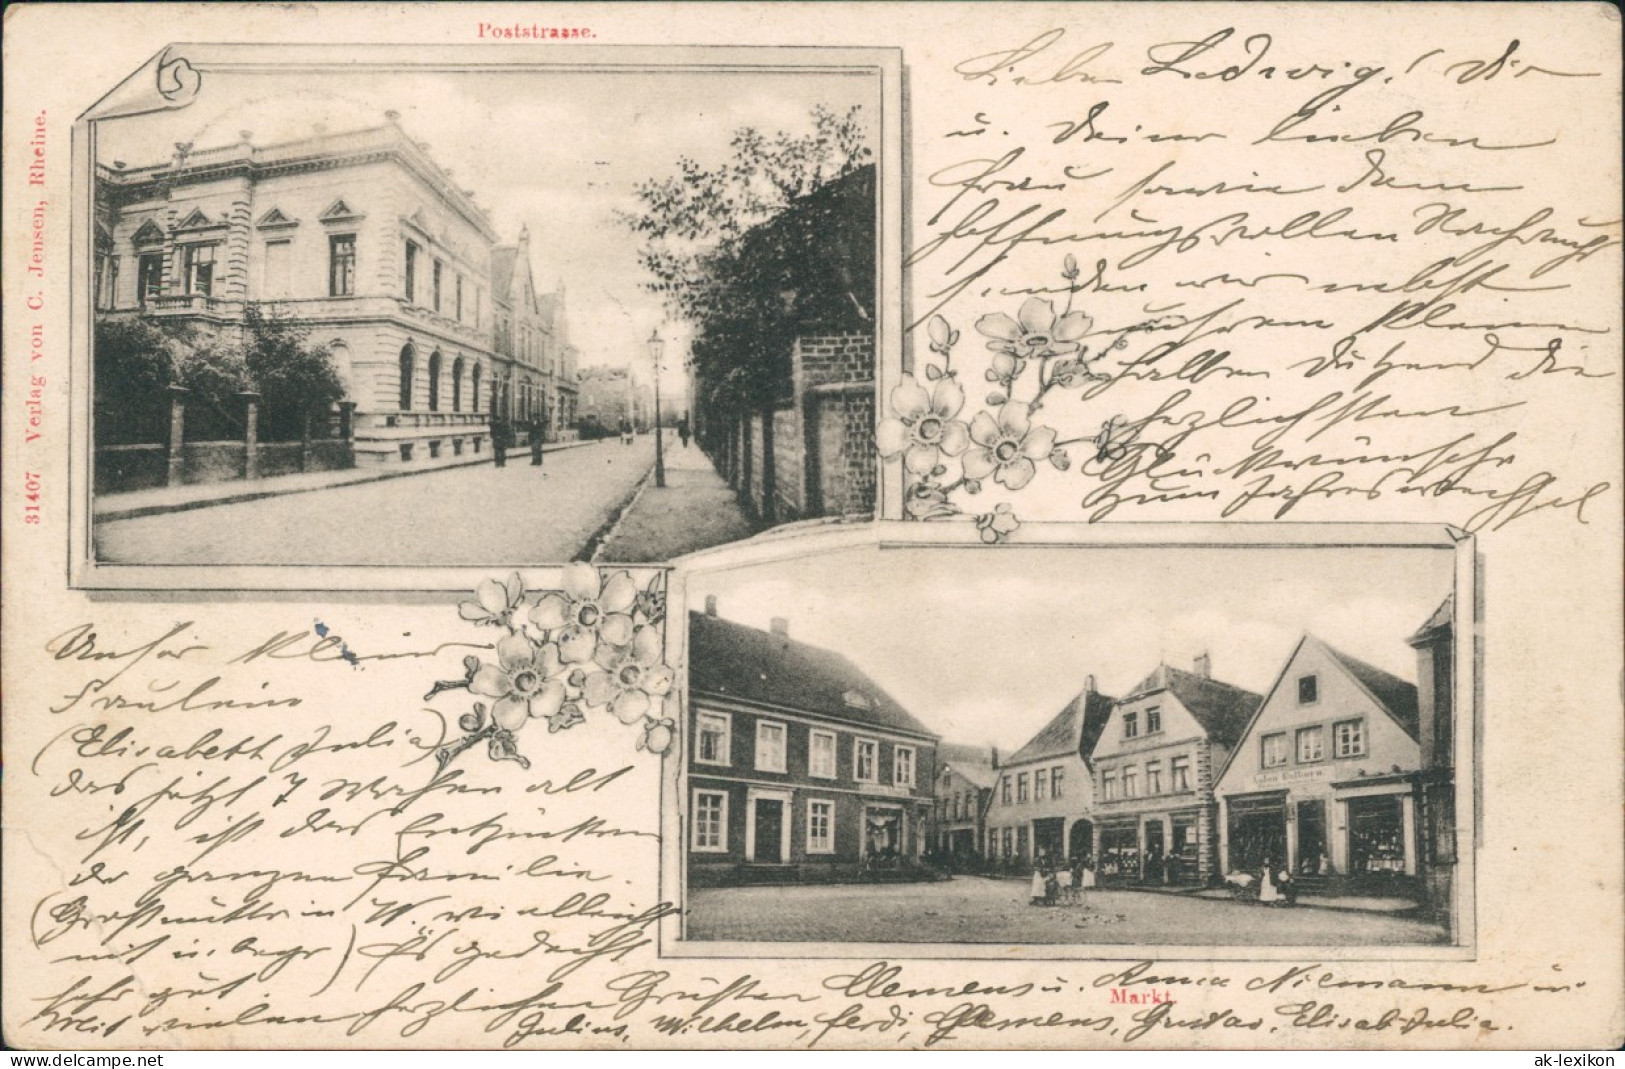 Poststrasse.
31407 Verlag von C. Jensen, Rheine.
Lieber Ludwig! Dir
u. Deiner lieben
Frau sowie dem
hoffnungsvollen Nachwuchs
senden wir nebst
unserem kleinen
halben Dutzend die
herzlichsten
Glückwünsche
zum Jahreswechsel
Unser kleines
Fräulein
(Elisabeth Julia)
das jetzt 7 Wochen alt
ist, ist das Entzücken
der ganzen Familie.
(Großmutter in W. vielleicht
mit u. ) Es gedeiht
sehr gut.
Mit vielen herzlichen Grüßen Clemens u. Anna Niemann u.
Julius, Wilhelm, Ferdi, Clemens, Gustav, Elisab. Julia.
Markt.
ak-ansichtskarten.de
ak-lexikon